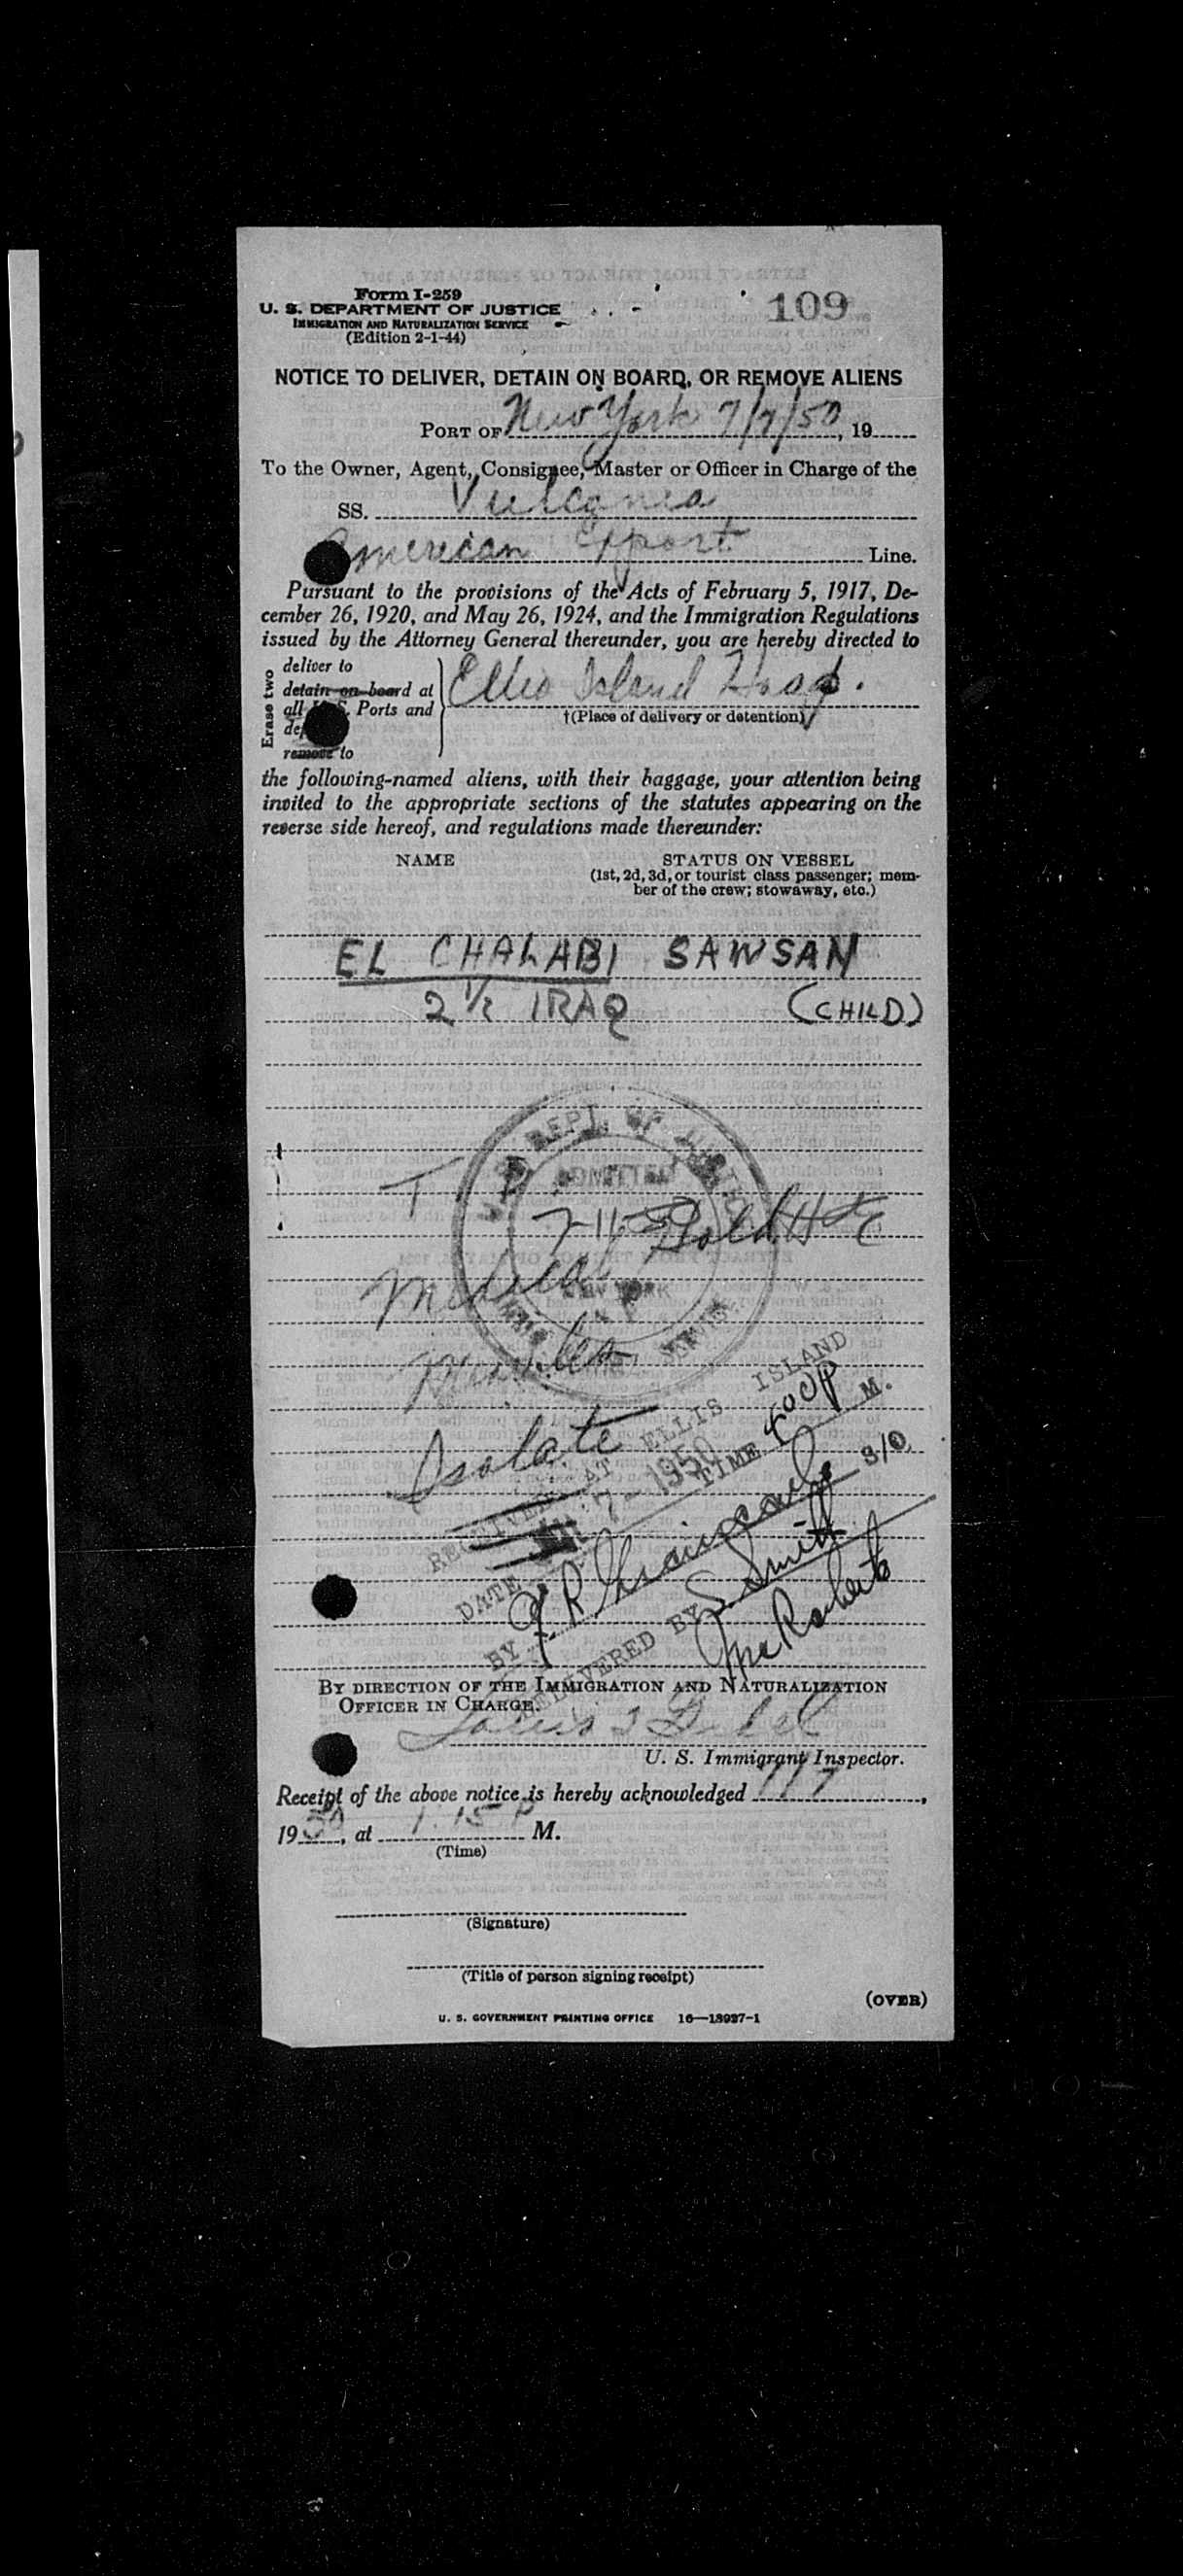 Form I-259
U. S. DEPARTMENT OF JUSTICE
IMMIGRATION AND NATURALIZATION SERVICE
(Edition 2-1-44)
109
NOTICE TO DELIVER, DETAIN ON BOARD, OR REMOVE ALIENS
PORT OF New York 7/7/50, 19
To the Owner, Agent, Consignee, Master or Officer in Charge of the
SS. Vulcania
American Export Line.
Pursuant to the provisions of the Acts of February 5, 1917, De-
cember 26, 1920, and May 26, 1924, and the Immigration Regulations
issued by the Attorney General thereunder, you are hereby directed to
Erase two
deliver to
detain on board at
all U.S. Ports and
remove to
Ellis Island Hosp.
†(Place of delivery or detention)
the following-named aliens, with their baggage, your attention being
invited to the appropriate sections of the statutes appearing on the
reverse side hereof, and regulations made thereunder:
NAME STATUS ON VESSEL
(1st, 2d, 3d, or tourist class passenger; mem-
ber of the crew; stowaway, etc.)
EL CHALABI SAWSAN
2 1/2 IRAQ (CHILD)
U.S. DEPT. OF JUSTICE
ADMITTED
T 7-11-50
Medical Hold
NEW YORK
Isolate
RECEIVED AT ELLIS ISLAND
DATE 7-1950 TIME 400P M.
BY S/O
DELIVERED BY Smitt
McRoberts
BY DIRECTION OF THE IMMIGRATION AND NATURALIZATION
OFFICER IN CHARGE.
Louis
U. S. Immigrant Inspector.
Receipt of the above notice is hereby acknowledged 7/7,
1950, at 1:15 P M.
(Time)
(Signature)
(Title of person signing receipt)
(OVER)
U. S. GOVERNMENT PRINTING OFFICE 16—13927-1